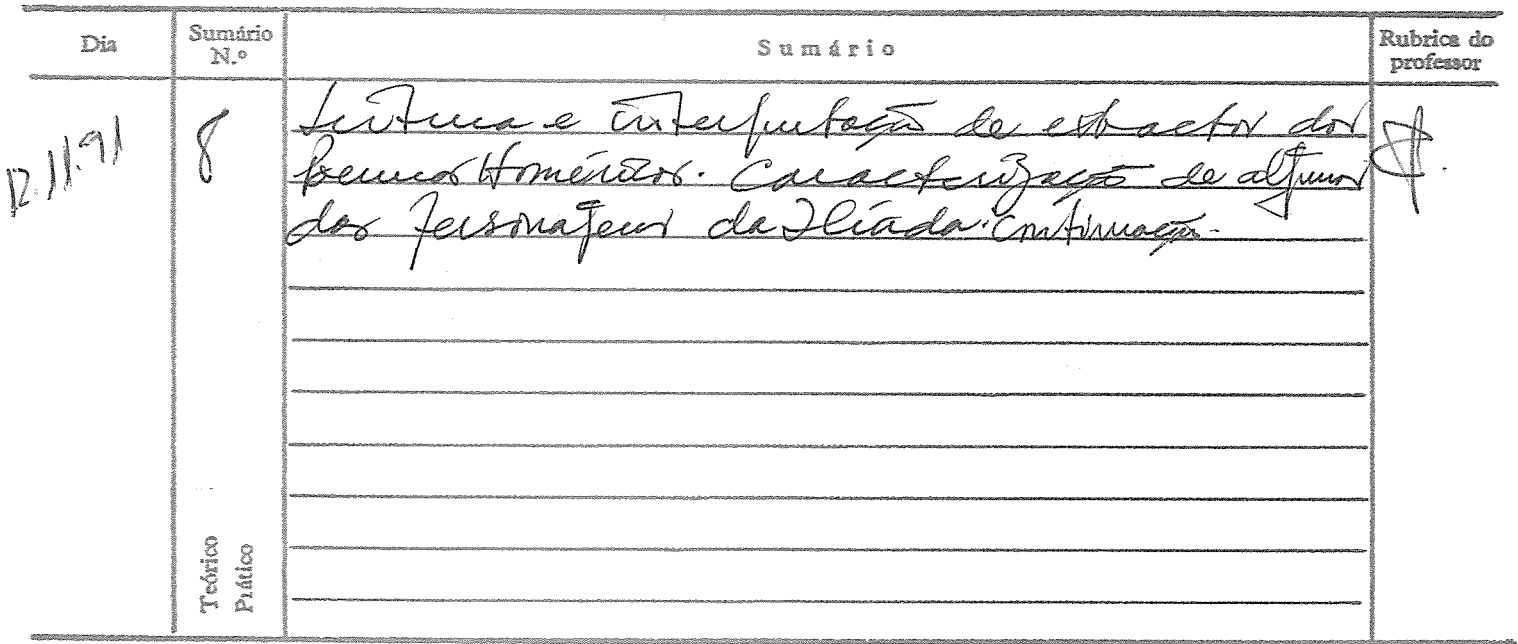 Dia
Sumário
N.º
Sumário
Rubrica do
professor
12.11.91
8
Leitura e interpretação de extractos dos
Poemas Homéricos. Caracterização de alguns
dos personagens da Ilíada. Continuação.
Teórico
Prático